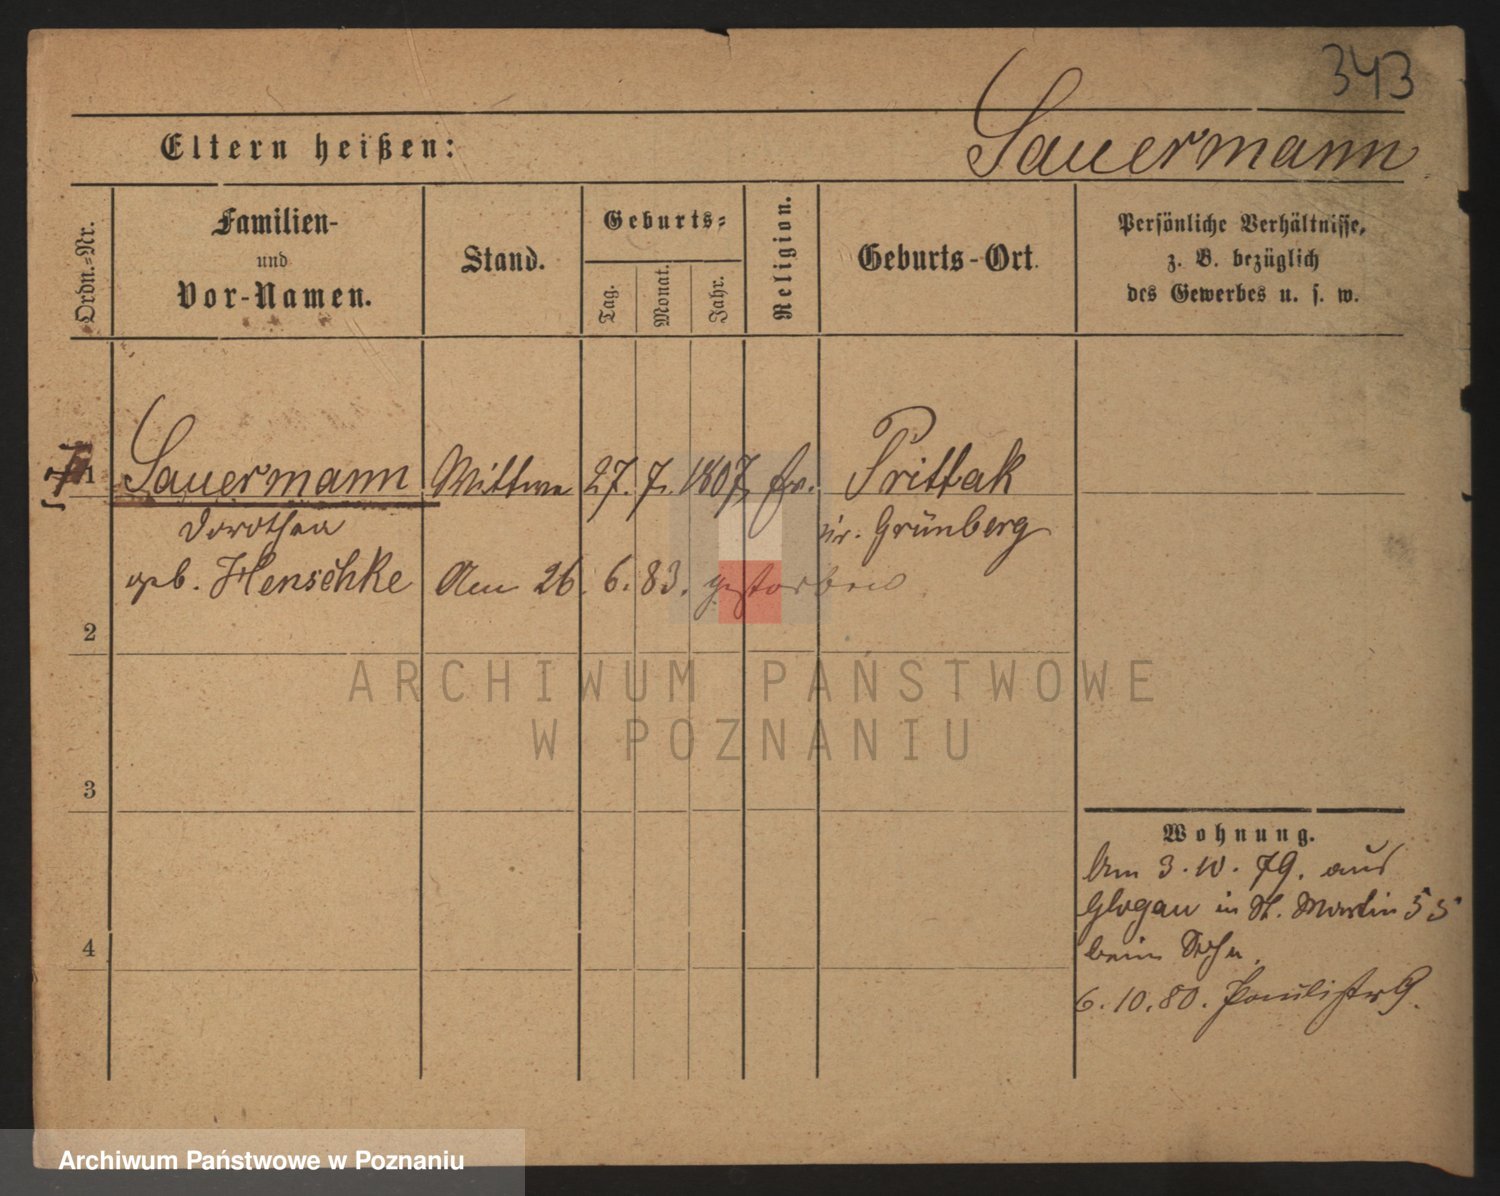 343
Eltern heißen:
Sauermann
Ordn.-Nr.
Familien-
und
Vor-Namen.
Stand.
Geburts-
Tag.
Monat.
Jahr.
Religion.
Geburts-Ort.
Persönliche Verhältnisse,
z. B. bezüglich
des Gewerbes u. s. w.
1 Sauermann Wittwe 27. 7. 1807 Ev. Prittak
Dorothea Kr. Grünberg
geb. Henschke Am 26. 6. 83. gestorben
2
ARCHIWUM PAŃSTWOWE
W POZNANIU
3
Wohnung.
Am 3. 10. 79. aus
Glogau in St. Martin 55
beim Sohn.
4
6. 10. 80. Paulistr 9.
Archiwum Państwowe w Poznaniu